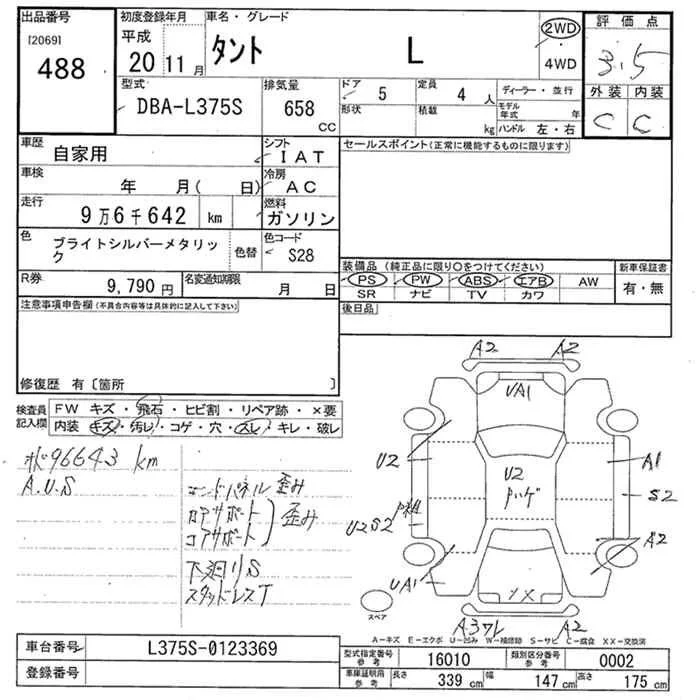 出品番号
[2069]
488
初度登録年月
平成
20 11 月
車名・グレード
タント L
2WD
4WD
評価点
3.5
外装 内装
C C
型式
DBA-L375S
排気量
658 CC
ドア
5
形状
定員
4 人
積載
kg
ディーラー・並行
モデル年式 年
ハンドル 左・右
車歴
自家用
シフト
IAT
車検
年 月( 日)
冷房
AC
走行
9万6千642 km
燃料
ガソリン
色
ブライトシルバーメタリック
色替
色コード
S28
R券
9,790 円
名変通知期限
月 日
セールスポイント(正常に機能するものに限ります)
装備品(純正品に限り〇をつけてください)
新車保証書
PS PW ABS エアB AW
有・無
SR ナビ TV カワ
後日品
注意事項申告欄(不具合内容等は具体的に記入して下さい)
修復歴 有〔箇所 〕
検査員
記入欄
FW キズ・飛石・ヒビ割・リペア跡・×要
内装 キズ・汚レ・コゲ・穴・スレ・キレ・破レ
96643 km
A.U.S
エンドパネル 歪み
ロアサポート
コアサポート
歪み
下廻りS
スタッドレスT
A2 A2
UA1
U2
U2
ハゲ
A1
S2
U2S2
A2
UA1
X
A3ワレ A2
スペア
A-キズ E-エクボ U-凹み W-補修跡 S-サビ C-腐食 XX-交換済
車台番号
L375S-0123369
登録番号
型式指定番号
参考
16010
類別区分番号
参考
0002
車庫証明用
参考
長さ 339 cm 幅 147 cm 高さ 175 cm